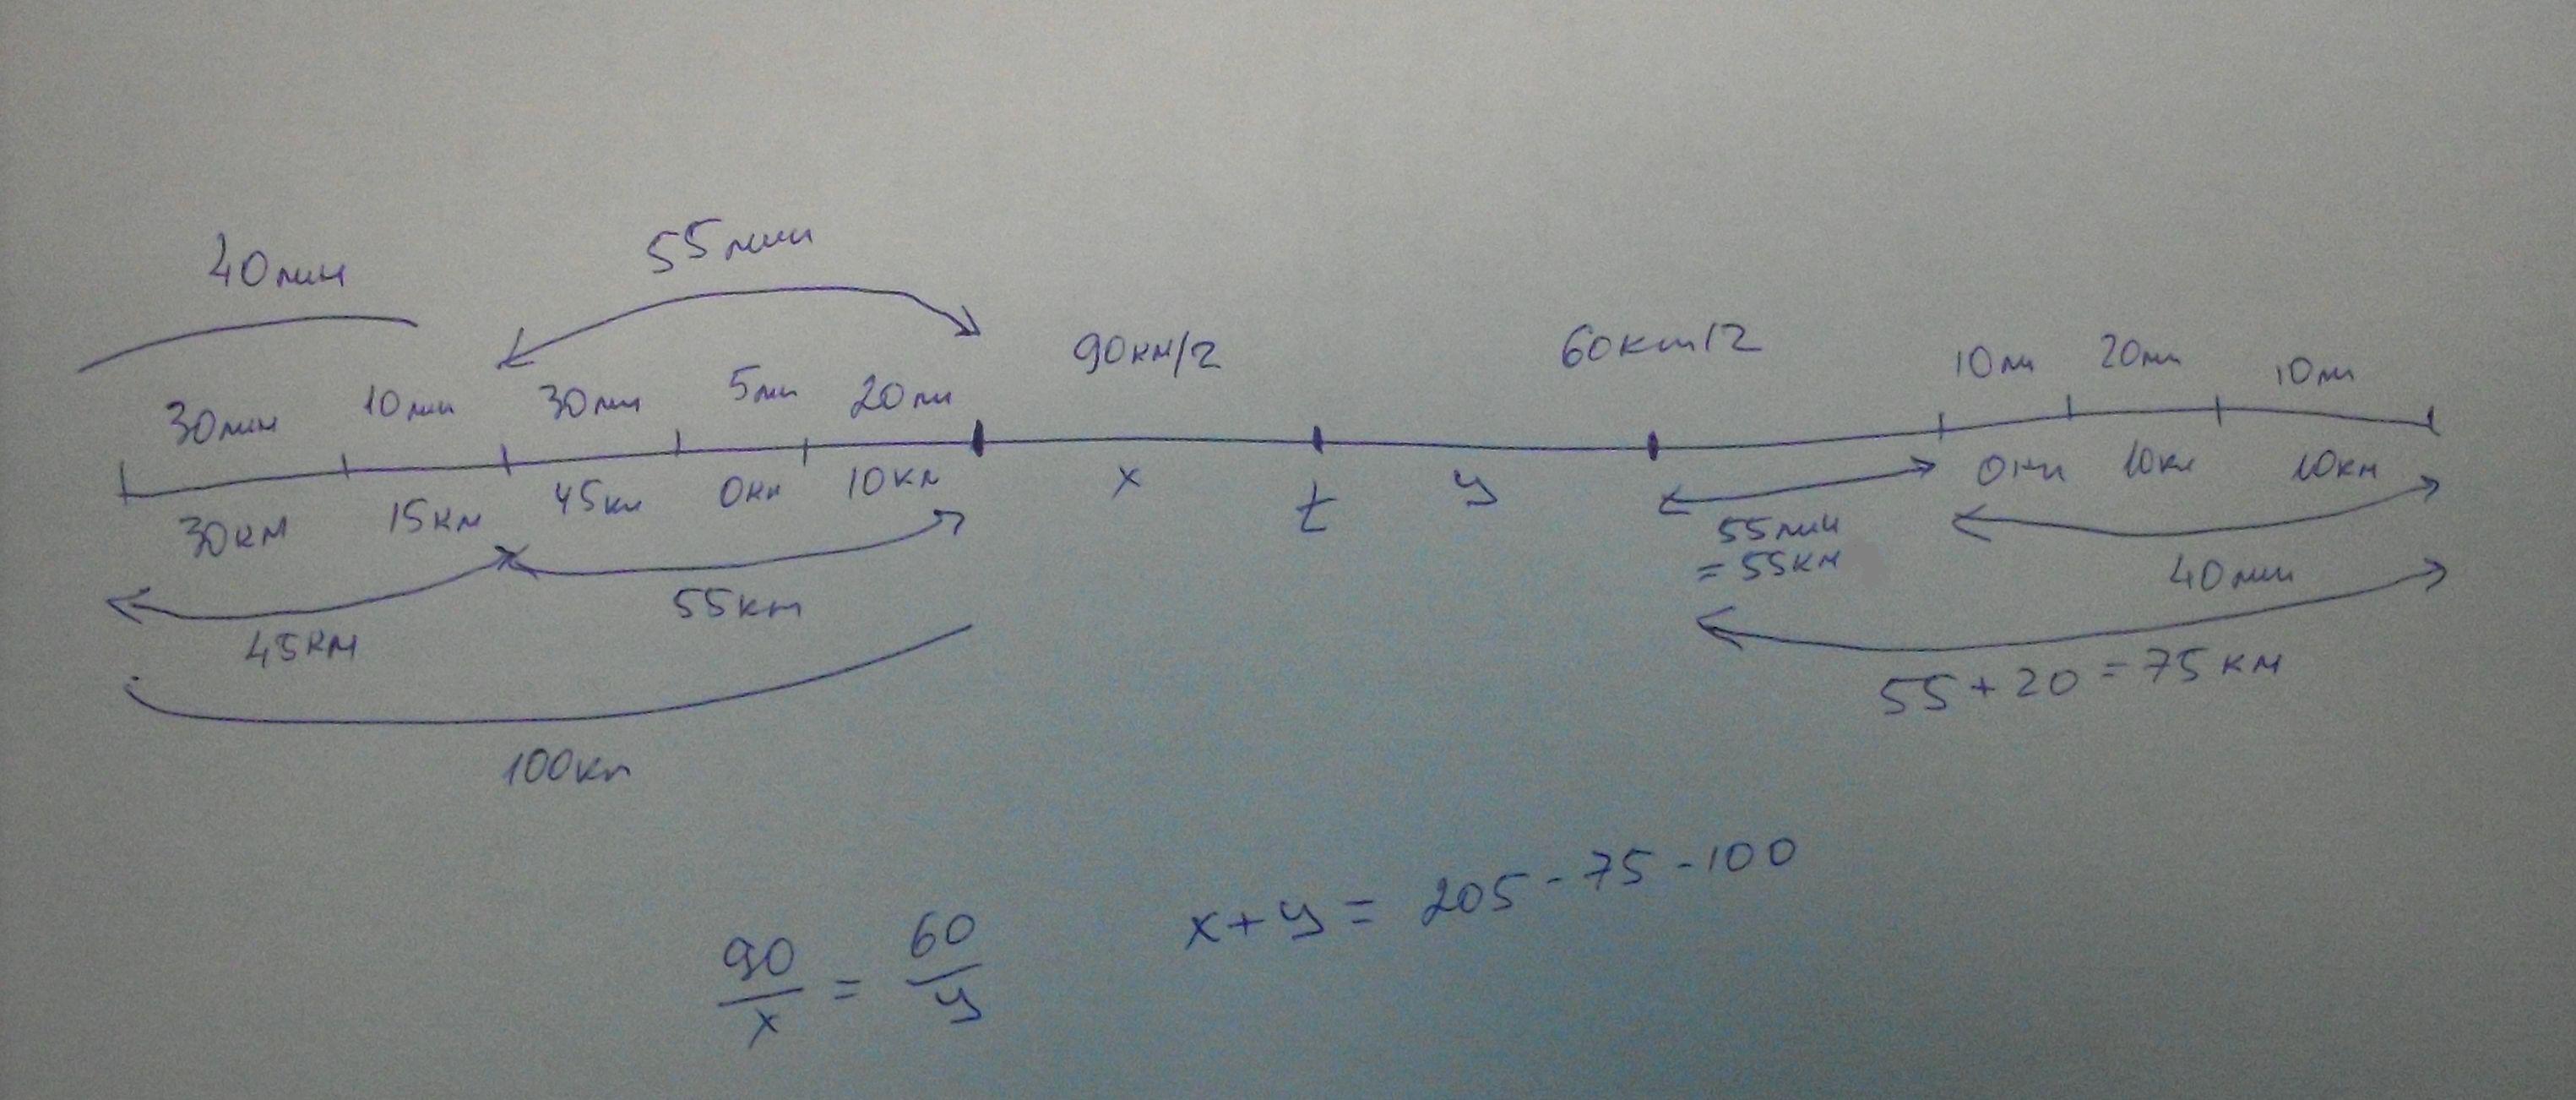 40мин
55мин
90км/г
60км/г
30мин 10мин 30мин 5мин 20мин
10мин 20мин 10мин
30км 15км 45км 0км 10км
x
t
y
0км 10км 10км
55мин
= 55км
40мин
45км
55км
55 + 20 = 75км
100км
90/x = 60/y
x + y = 205 - 75 - 100